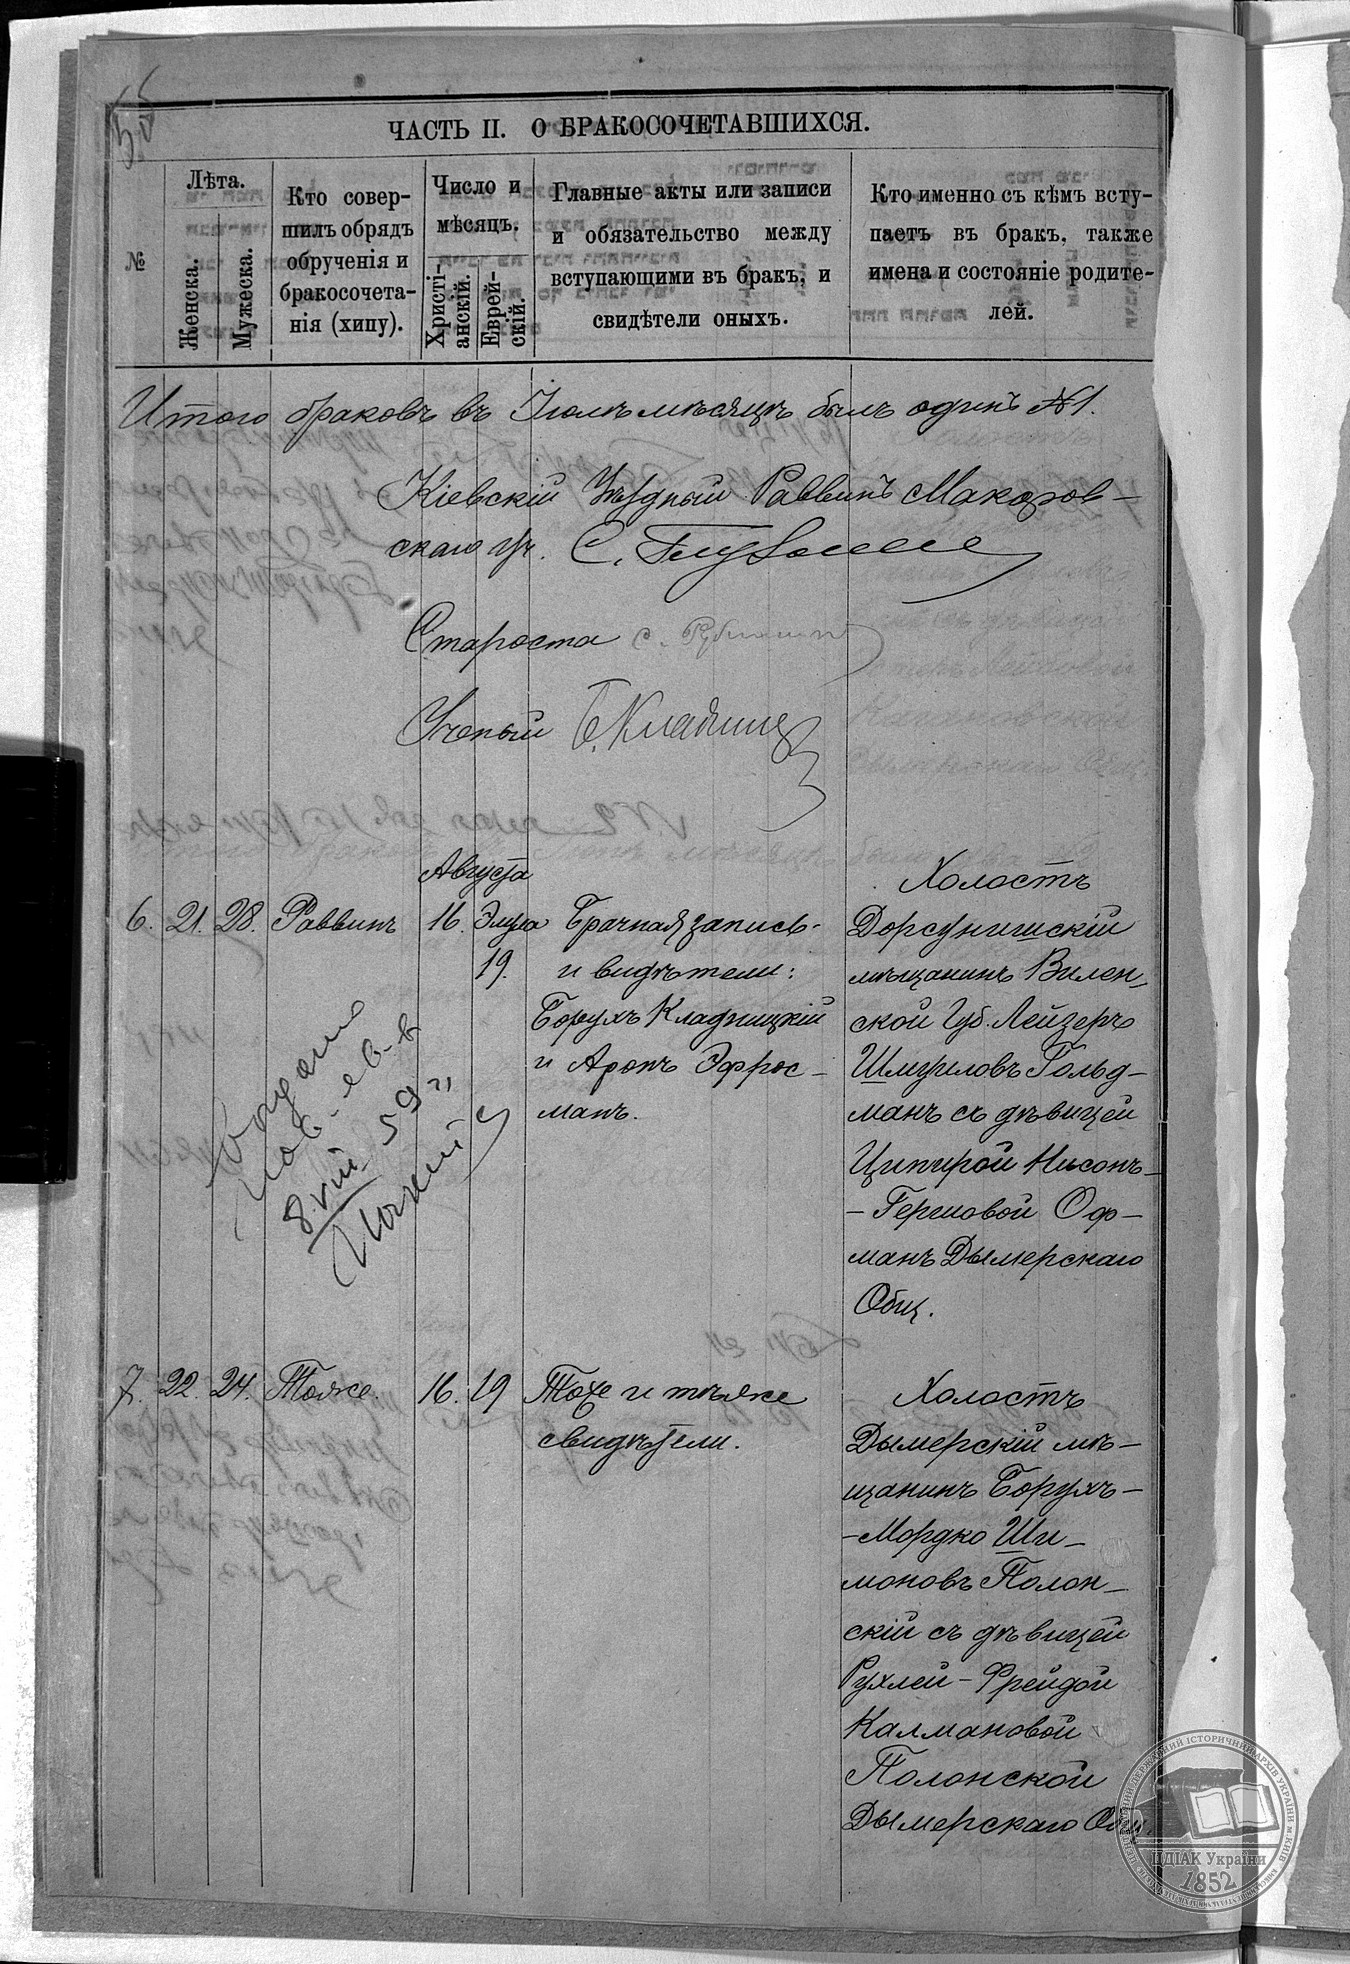 55
ЧАСТЬ II. О БРАКОСОЧЕТАВШИХСЯ.
№
Лѣта.
Женска.
Мужеска.
Кто совер-
шилъ обрядъ
обрученія и
бракосочета-
нія (хипу).
Число и
мѣсяцъ.
Христі-
анскій.
Еврей-
скій.
Главные акты или записи
и обязательство между
вступающими въ бракъ, и
свидѣтели оныхъ.
Кто именно съ кѣмъ всту-
паетъ въ бракъ, также
имена и состояніе родите-
лей.
Итого браковъ въ Іюлѣ мѣсяцѣ былъ одинъ №1.
Кіевскій Уѣздный Раввинъ Макаров-
скаго уч. С.
Староста С.
Ученый Б. Кладниц
Августа
6. 21. 28. Раввинъ 16. Элула
19.
Брачная запись
и видѣтели:
Борухъ Кладницкій
и Аронъ Эфрос-
манъ.
Холостъ
Дорсунишскій
мѣщанинъ Вилен-
ской Губ. Лейзеръ
Шмуиловъ Гольд-
манъ съ дѣвицей
Ципирой Нисонъ-
-Гершовой Оф-
манъ Дымерскаго
Общ.
8.VIII 59 г.
7. 22. 24. Тоже. 16. 19 Тоже и тѣже
свидѣтели.
Холостъ
Дымерскій мѣ-
щанинъ Борухъ-
-Мордко Ши-
моновъ Полон-
скій съ дѣвицей
Рухлей-Фрейдой
Калмановой
Полонской
Дымерскаго Общ.
ЦДІАК України
1852